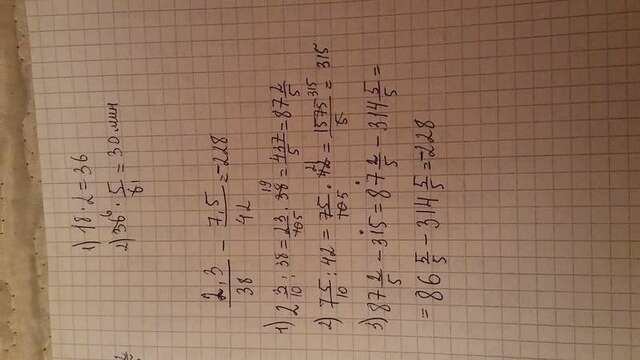 1) 18 · 2 = 36
2) 36 6 · 5/6 1 = 30 мин
2,3/38 − 7,5/42 = -228
1) 2 3/10 : 38 = 23/10 5 · 38 19 = 437/5 = 87 2/5
2) 75/10 : 42 = 75/10 5 · 42 21 = 1575 315/5 = 315
3) 87 2/5 − 315 = 87 2/5 − 314 5/5 =
= 86 5/5 − 314 5/5 = -228